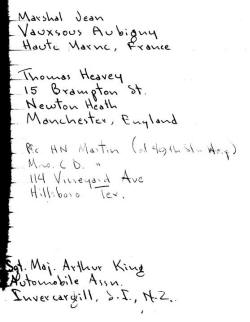 Marshal Jean
Vauxsous Aubigny
Haute Marne, France
Thomas Heavey
15 Brampton St.
Newton Heath
Manchester, England
Pvc HN Martin (of 49th Stn Hosp)
Mrs. C D. "
114 Vineyard Ave
Hillsboro Tex.
Sgt. Maj. Arthur King
Automobile Assn.
Invercargill, S.I., N.Z.